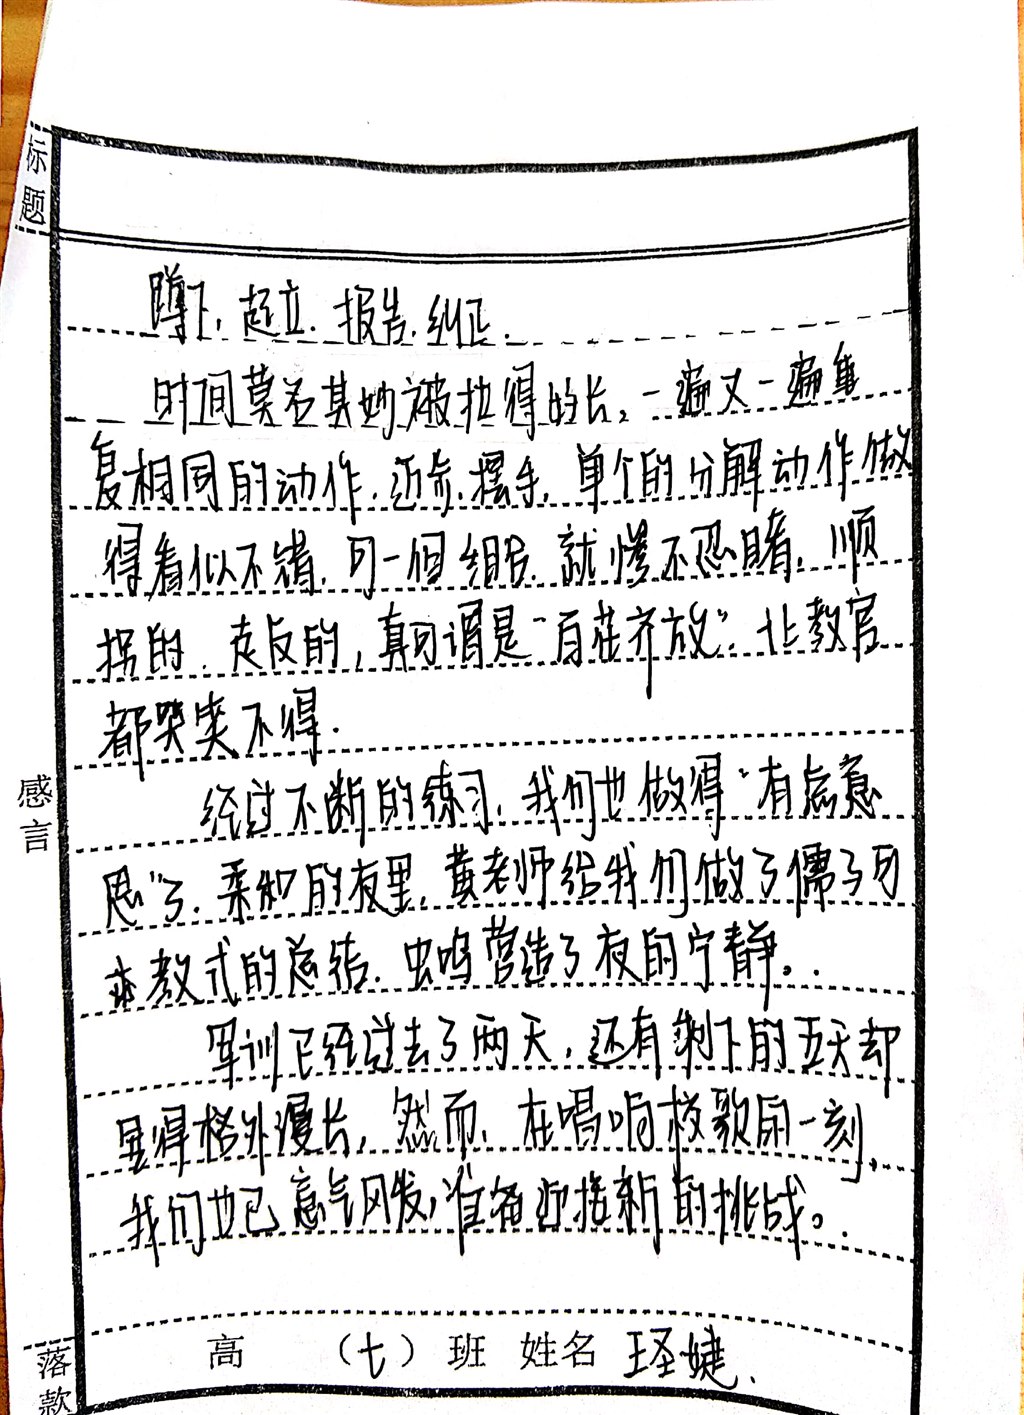 标题
蹲下,起立.报告.纠正.
时间莫名其妙被拉得的长,一遍又一遍重
复相同的动作.迈步.摆手.单个的分解动作做
得看似不错.可一个组合.就惨不忍睹.顺
拐的.走反的,真可谓是“百花齐放”.让教官
都哭笑不得.
经过不断的练习,我们也做得“有点意
思”了.柔和的夜里,黄老师给我们做了儒子可
教式的总结.虫鸣营造了夜的宁静。.
军训已经过去了两天,还有剩下的五天却
显得格外漫长,然而,在唱响校歌的一刻,
我们也已意气风发,准备迎接新的挑战。.
感言
落款
高 (七)班 姓名 王圣婕.